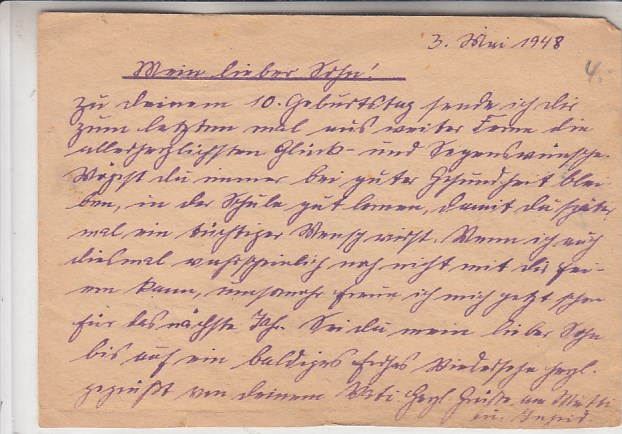 3. Mai 1948
4.
Mein lieber Sohn!
Zu deinem 10. Geburtstag sende ich dir
zum letzten mal aus weiter Ferne die
allerherzlichsten Glück- und Segenswünsche.
Mögest du immer bei guter Gesundheit blei-
ben, in der Schule gut lernen, damit du später
mal ein tüchtiger Mensch wirst. Wenn ich auch
diesmal wahrscheinlich noch nicht mit dir fei-
ern kann, umsomehr freue ich mich jetzt schon
für das nächste Jahr. Sei du mein lieber Sohn
bis auf ein baldiges frohes Wiedersehn herzl.
gegrüßt von deinem Vati Herzl. Grüße an Mutti
u.